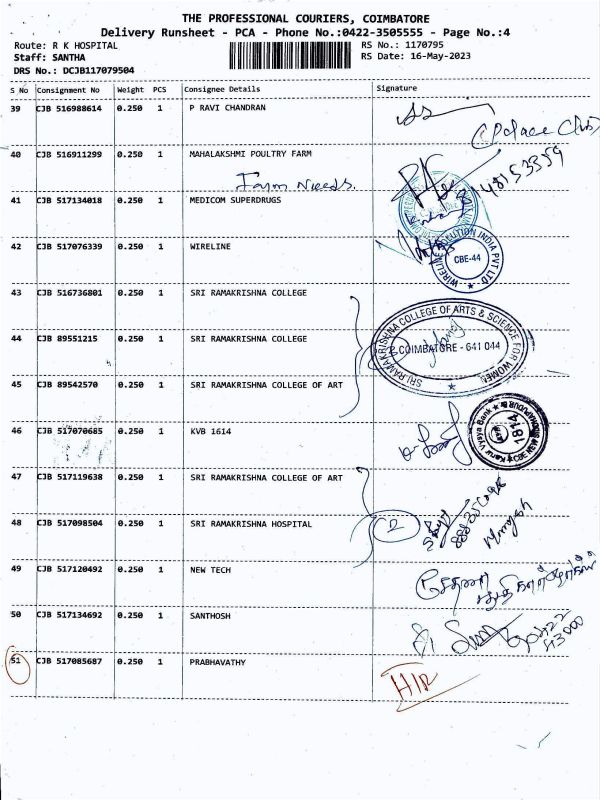 THE PROFESSIONAL COURIERS, COIMBATORE
Delivery Runsheet - PCA - Phone No.:0422-3505555 - Page No.:4
Route: R K HOSPITAL RS No.: 1170795
Staff: SANTHA RS Date: 16-May-2023
DRS No.: DCJB117079504
S No Consignment No Weight PCS Consignee Details Signature
39 CJB 516988614 0.250 1 P RAVI CHANDRAN
40 CJB 516911299 0.250 1 MAHALAKSHMI POULTRY FARM
Farm Needs.
41 CJB 517134018 0.250 1 MEDICOM SUPERDRUGS
42 CJB 517076339 0.250 1 WIRELINE
WIRELINE SOLUTION INDIA PVT LTD
CBE-44
43 CJB 516736801 0.250 1 SRI RAMAKRISHNA COLLEGE
44 CJB 89551215 0.250 1 SRI RAMAKRISHNA COLLEGE
SRI RAMAKRISHNA COLLEGE OF ARTS & SCIENCE FOR WOMEN
COIMBATORE - 641 044
45 CJB 89542570 0.250 1 SRI RAMAKRISHNA COLLEGE OF ART
46 CJB 517070685 0.250 1 KVB 1614
Karur Vysya Bank
1614
47 CJB 517119638 0.250 1 SRI RAMAKRISHNA COLLEGE OF ART
48 CJB 517098504 0.250 1 SRI RAMAKRISHNA HOSPITAL
2
49 CJB 517120492 0.250 1 NEW TECH
50 CJB 517134692 0.250 1 SANTHOSH
51 CJB 517085687 0.250 1 PRABHAVATHY